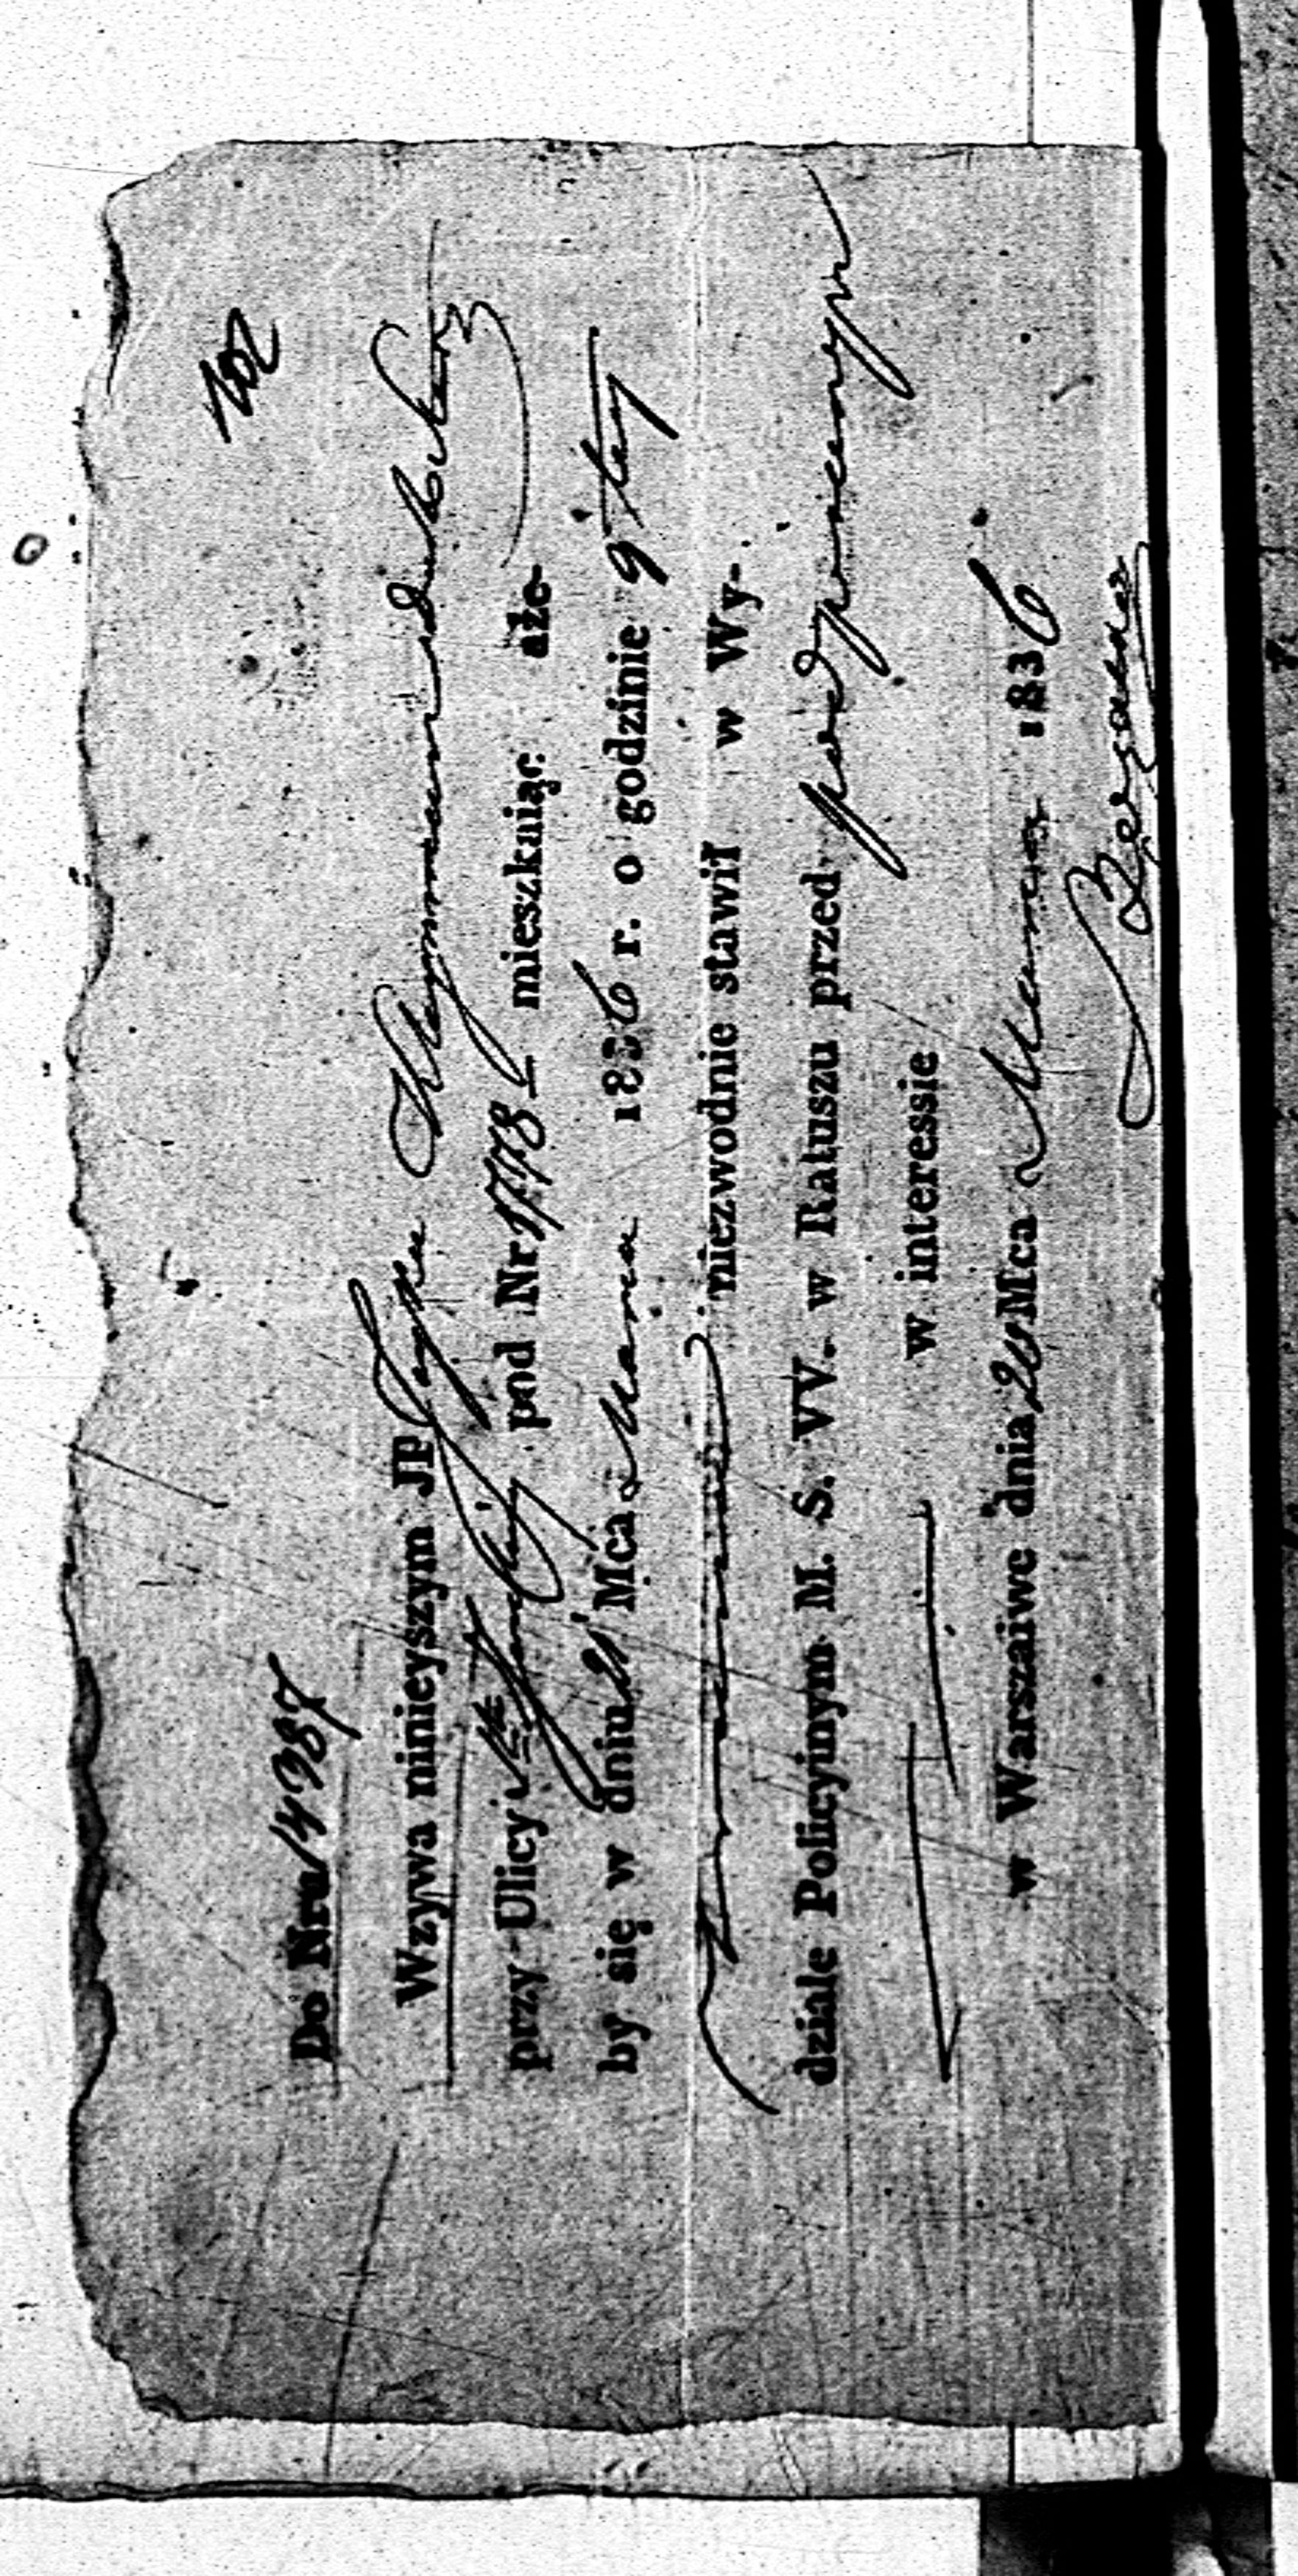 102
Do Nru 14387
Wzywa ninieyszym JP
przy Ulicy Sto pod Nr 1778 mieszkaiąc aże-
by się w dniu 21 Mca Marca 1836 r. o godzinie 9 tey
niezwodnie stawił w Wy-
dziale Policyinym M. S. W. w Ratuszu przed podpisanym
w interessie
w Warszaiwe dnia 20 Mca Marca 1836